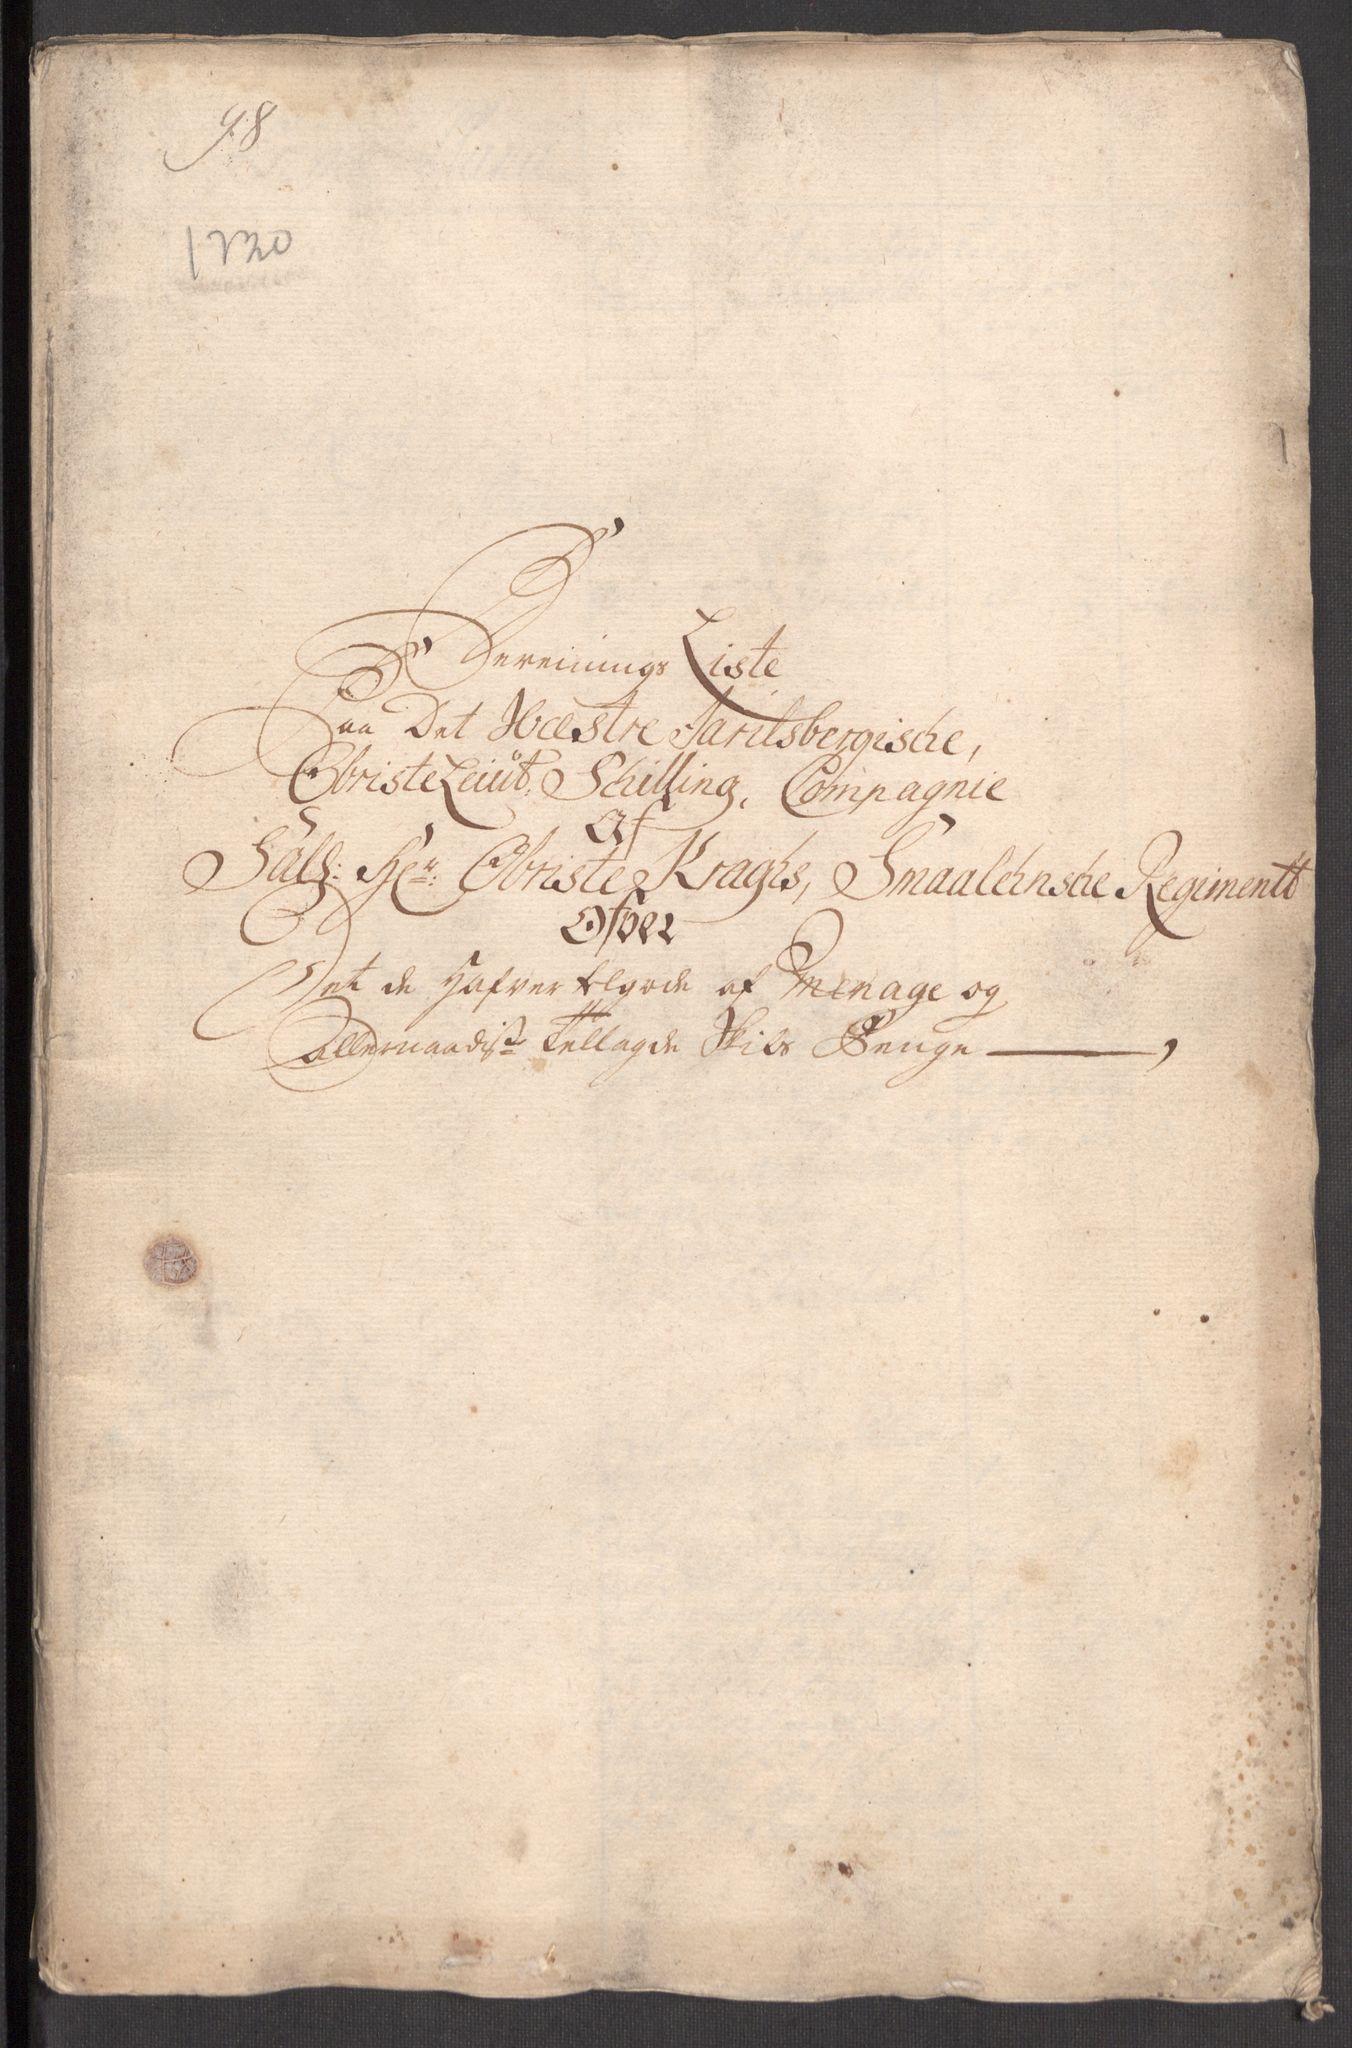 98
1720
Bereinings Liste
Paa Det Wæstre Jarilsbergische,
Obriste Leiüt: Schilling, Compagnie
Af
Sālg: Hr: Obriste Kraghs, Smaalehnsche Regimentt
Ofver
Det de Hafver belgode af Menage og
Allernaadist Tellagde Skils Penge